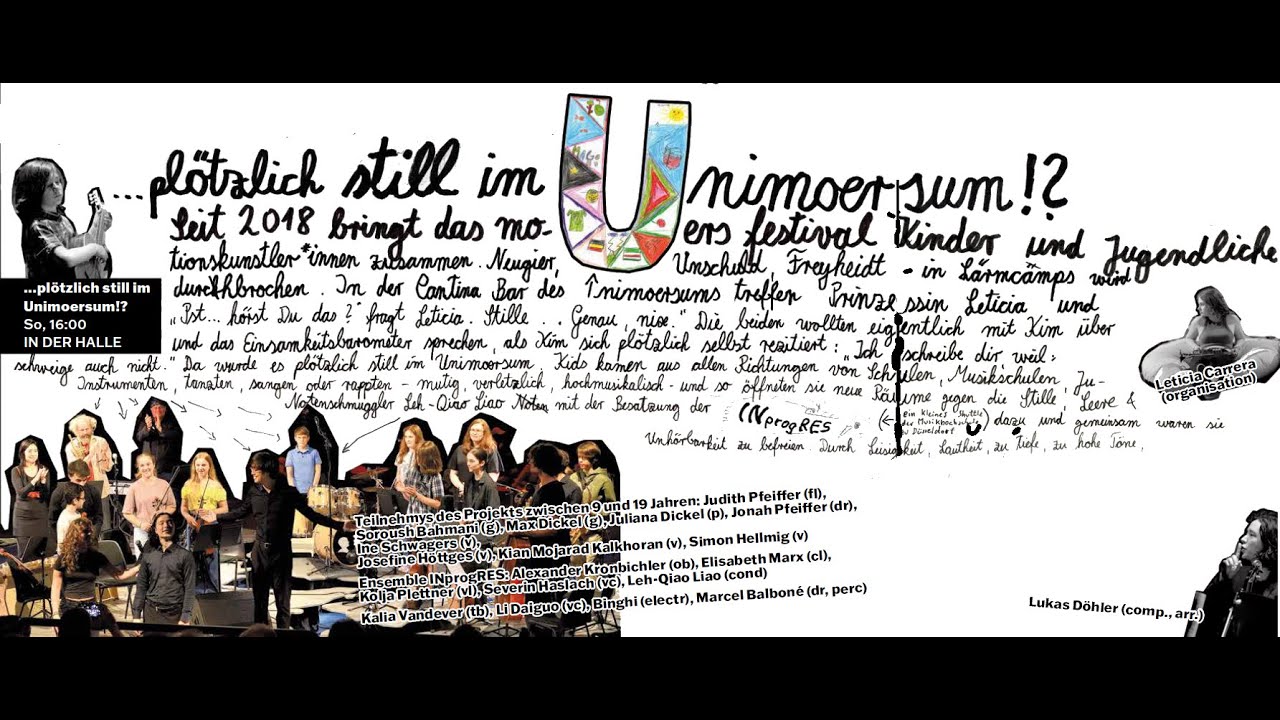 ...plötzlich still im Unimoersum!?
Seit 2018 bringt das mo-ers festival Kinder und Jugendliche
tionskunstler*innen zusammen. Neugier, Unschuld, Freyheidt - in Lärmcämps wird
durchbrochen. In der Cantina Bar des Unimoersums treffen Prinzessin Leticia und
"Pst... hörst Du das?" fragt Leticia. Stille... Genau, nix." Die beiden wollten eigentlich mit Kim über
und das Einsamkeitsbarometer sprechen, als Kim sich plötzlich selbst rezitiert: "Ich schreibe dir weil:
schweige auch nicht." Da wurde es plötzlich still im Unimoersum. Kids kamen aus allen Richtungen von Schulen, Musikschulen, Ju-
Instrumenten, tanzten, sangen oder rappten - mutig, verletzlich, hochmusikalisch - und so öffneten sie neue Räume gegen die Stille, Leere &
Notenschmuggler Leh-Qiao Liao Noten mit der Besatzung der INprogRES (ein kleines Shuttle der Musikhochschule Düsseldorf) dazu und gemeinsam waren sie
Unhörbarkeit zu befreien. Durch Leisigkeit, Lautheit, zu tiefe, zu hohe Töne,
...plötzlich still im
Unimoersum!?
So, 16:00
IN DER HALLE
Leticia Carrera
(organisation)
Teilnehmys des Projekts zwischen 9 und 19 Jahren: Judith Pfeiffer (fl),
Soroush Bahmani (g), Max Dickel (g), Juliana Dickel (p), Jonah Pfeiffer (dr),
Ine Schwagers (v),
Josefine Höttges (v), Kian Mojarad Kalkhoran (v), Simon Hellmig (v)
Ensemble INprogRES: Alexander Kronbichler (ob), Elisabeth Marx (cl),
Kolja Plettner (vl), Severin Haslach (vc), Leh-Qiao Liao (cond)
Kalia Vandever (tb), Li Daiguo (vc), Binghi (electr), Marcel Balboné (dr, perc)
Lukas Döhler (comp., arr.)